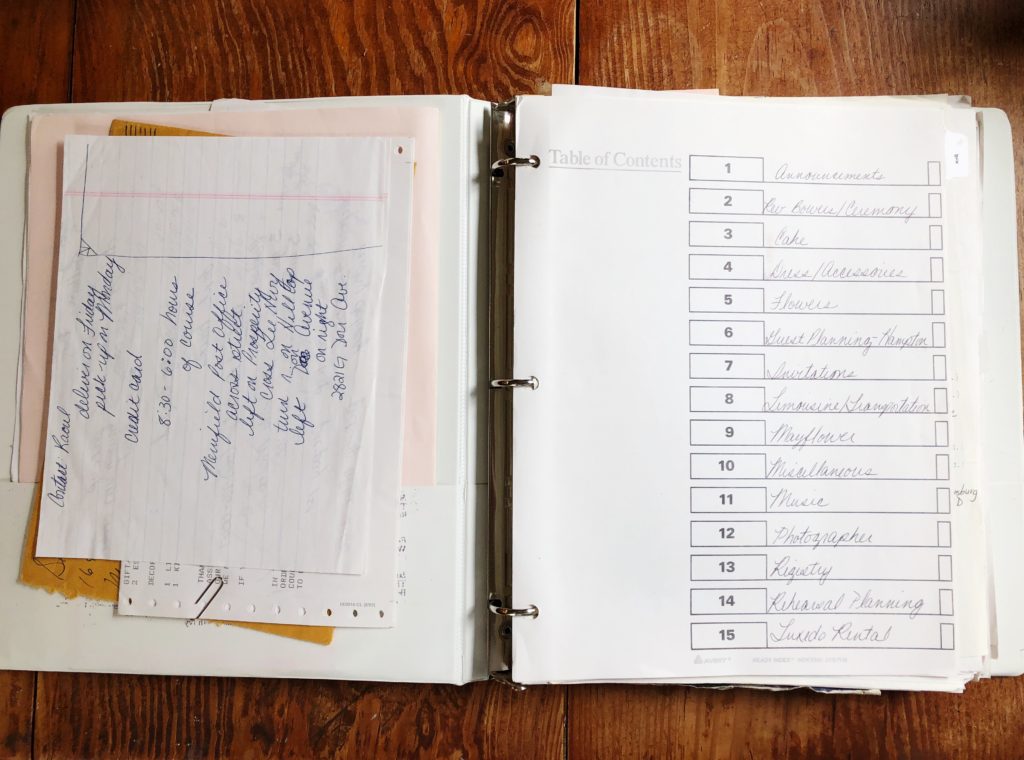 Contact: Raoul
deliver on Friday
pick-up on Monday
credit card
8:30 - 6:00 hours
of course
Merrifield Post Office
across street
left on Prosperity
cross Lee Hwy
turn on Hilltop
left on Avenue
on right
2221G Dorr Ave.
16
GIFT
2 ES
DECOR
1 LI
1 KI
THA
IF
IN
ORI
COU
TO
#3
Table of Contents
1 Announcements
2 Rev Bowes/Ceremony
3 Cake
4 Dress/Accessories
5 Flowers
6 Guest Planning-Hampton
7 Invitations
8 Limousine/Transportation
9 Mayflower
10 Miscellaneous
11 Music
12 Photographer
13 Registry
14 Rehearsal Planning
15 Tuxedo Rental
AVERY READY INDEX